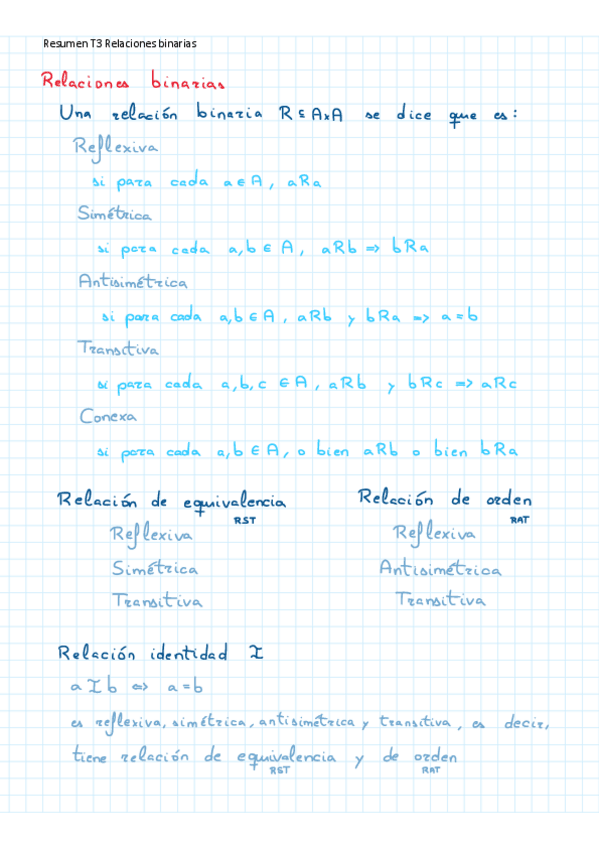 Resumen T3 Relaciones binarias
Relaciones binarias
Una relación binaria R ⊆ A×A se dice que es:
Reflexiva
si para cada a ∈ A, aRa
Simétrica
si para cada a,b ∈ A, aRb => bRa
Antisimétrica
si para cada a,b ∈ A, aRb y bRa => a=b
Transitiva
si para cada a,b,c ∈ A, aRb y bRc => aRc
Conexa
si para cada a,b ∈ A, o bien aRb o bien bRa
Relación de equivalencia
RST
Reflexiva
Simétrica
Transitiva
Relación de orden
RAT
Reflexiva
Antisimétrica
Transitiva
Relación identidad I
a I b <=> a=b
es reflexiva, simétrica, antisimétrica y transitiva, es decir,
tiene relación de equivalencia y de orden
RST RAT